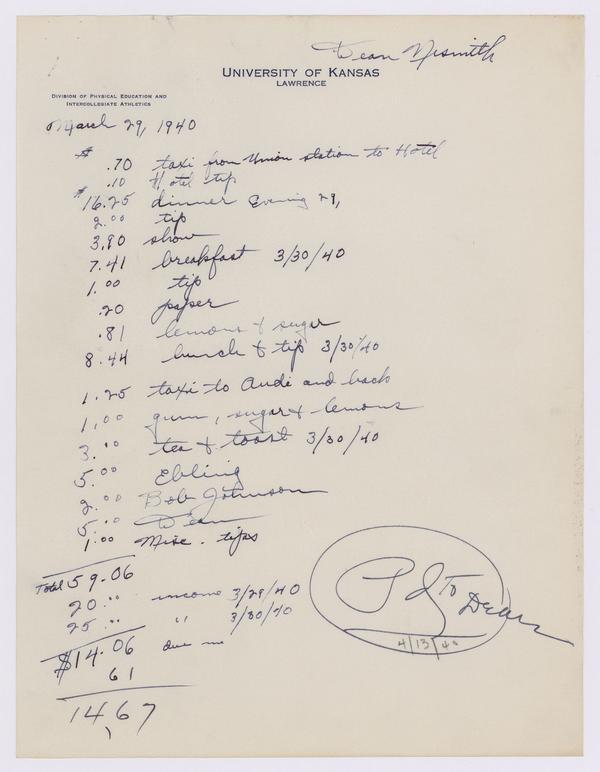 Dean Nesmith
UNIVERSITY OF KANSAS
LAWRENCE
DIVISION OF PHYSICAL EDUCATION AND
INTERCOLLEGIATE ATHLETICS
March 29, 1940
$ .70 taxi from Union station to Hotel
.10 Hotel tip
$ 16.25 dinner Evening 29,
2.00 tip
3.90 show
7.41 breakfast 3/30/40
1.00 tip
.20 paper
.81 lemons & sugar
8.44 lunch & tip 3/30/40
1.25 taxi to Audi and back
1.00 gum, sugar & lemons
3.00 tea & toast 3/30/40
5.00 Ebling
2.00 Bob Johnson
5.00 Dean
1.00 Misc. tips
Total 59.06
20.00 income 3/29/40
25.00 " 3/30/40
$14.06 due me
61
14.67
Pd To Dean
4/13/40